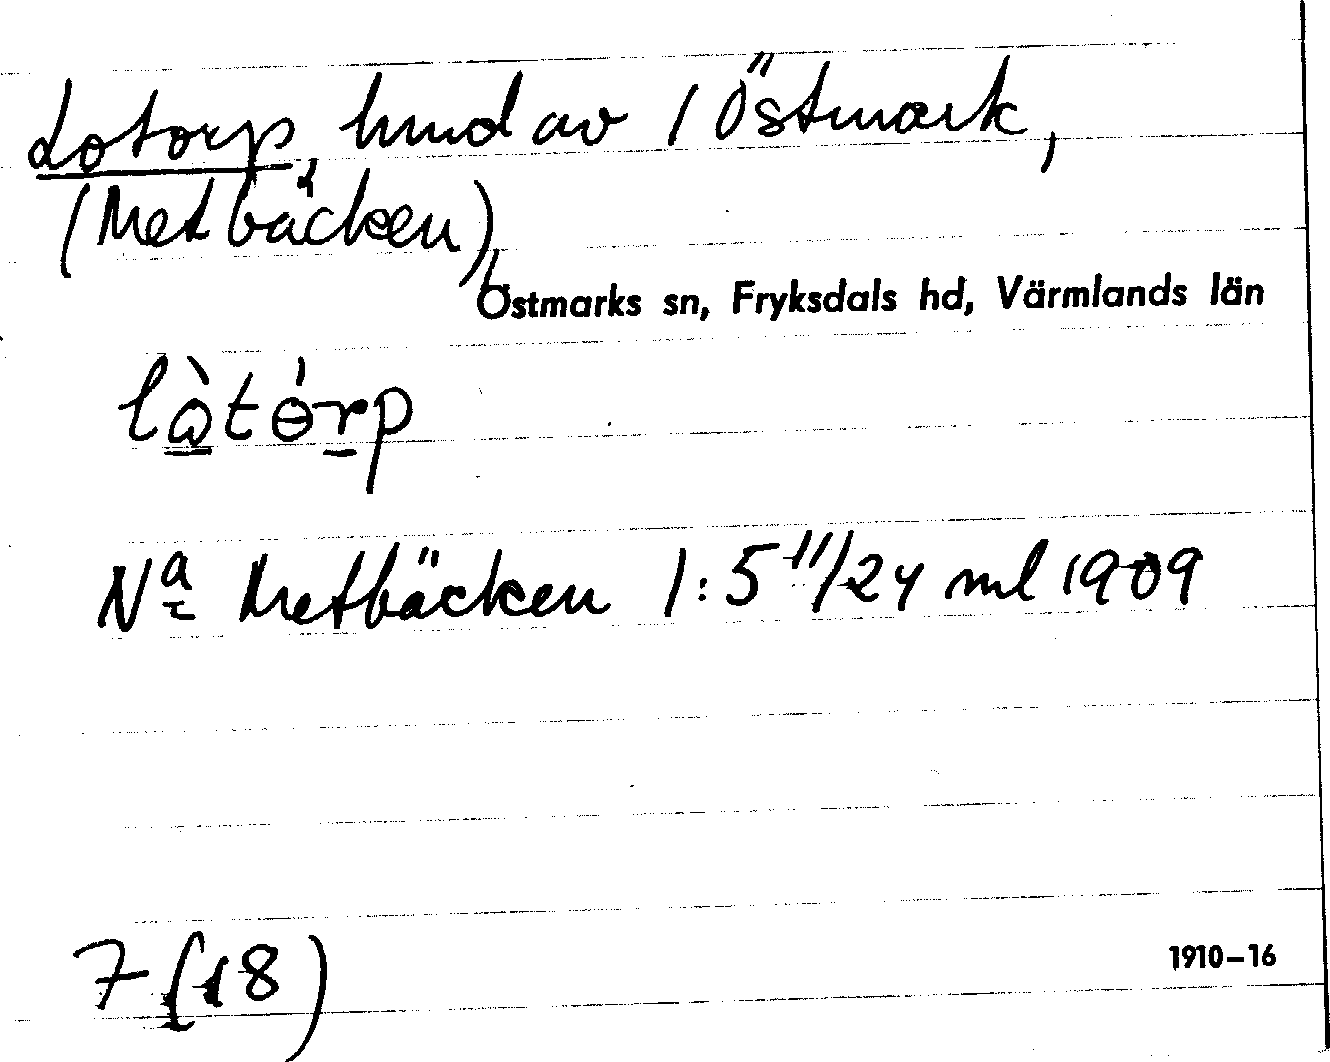 Lotorp, hmd av 1 Östmark,
(Metbäcken)
Östmarks sn, Fryksdals hd, Värmlands län
là̱tóṟp
Nª Metbäcken 1:5 11/24 ml 1909
7 (18)
1910–16